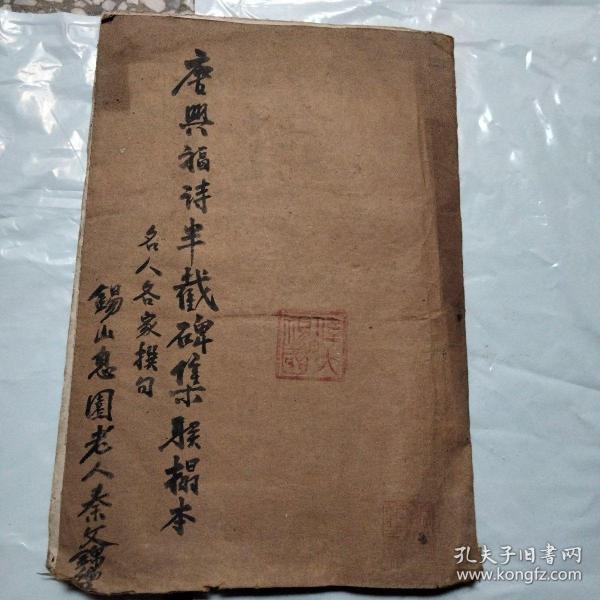 唐興福诗半截碑集联榻本
名人各家撰句
錫山息園老人秦文錦
孔夫子旧书网
www.kongfz.com